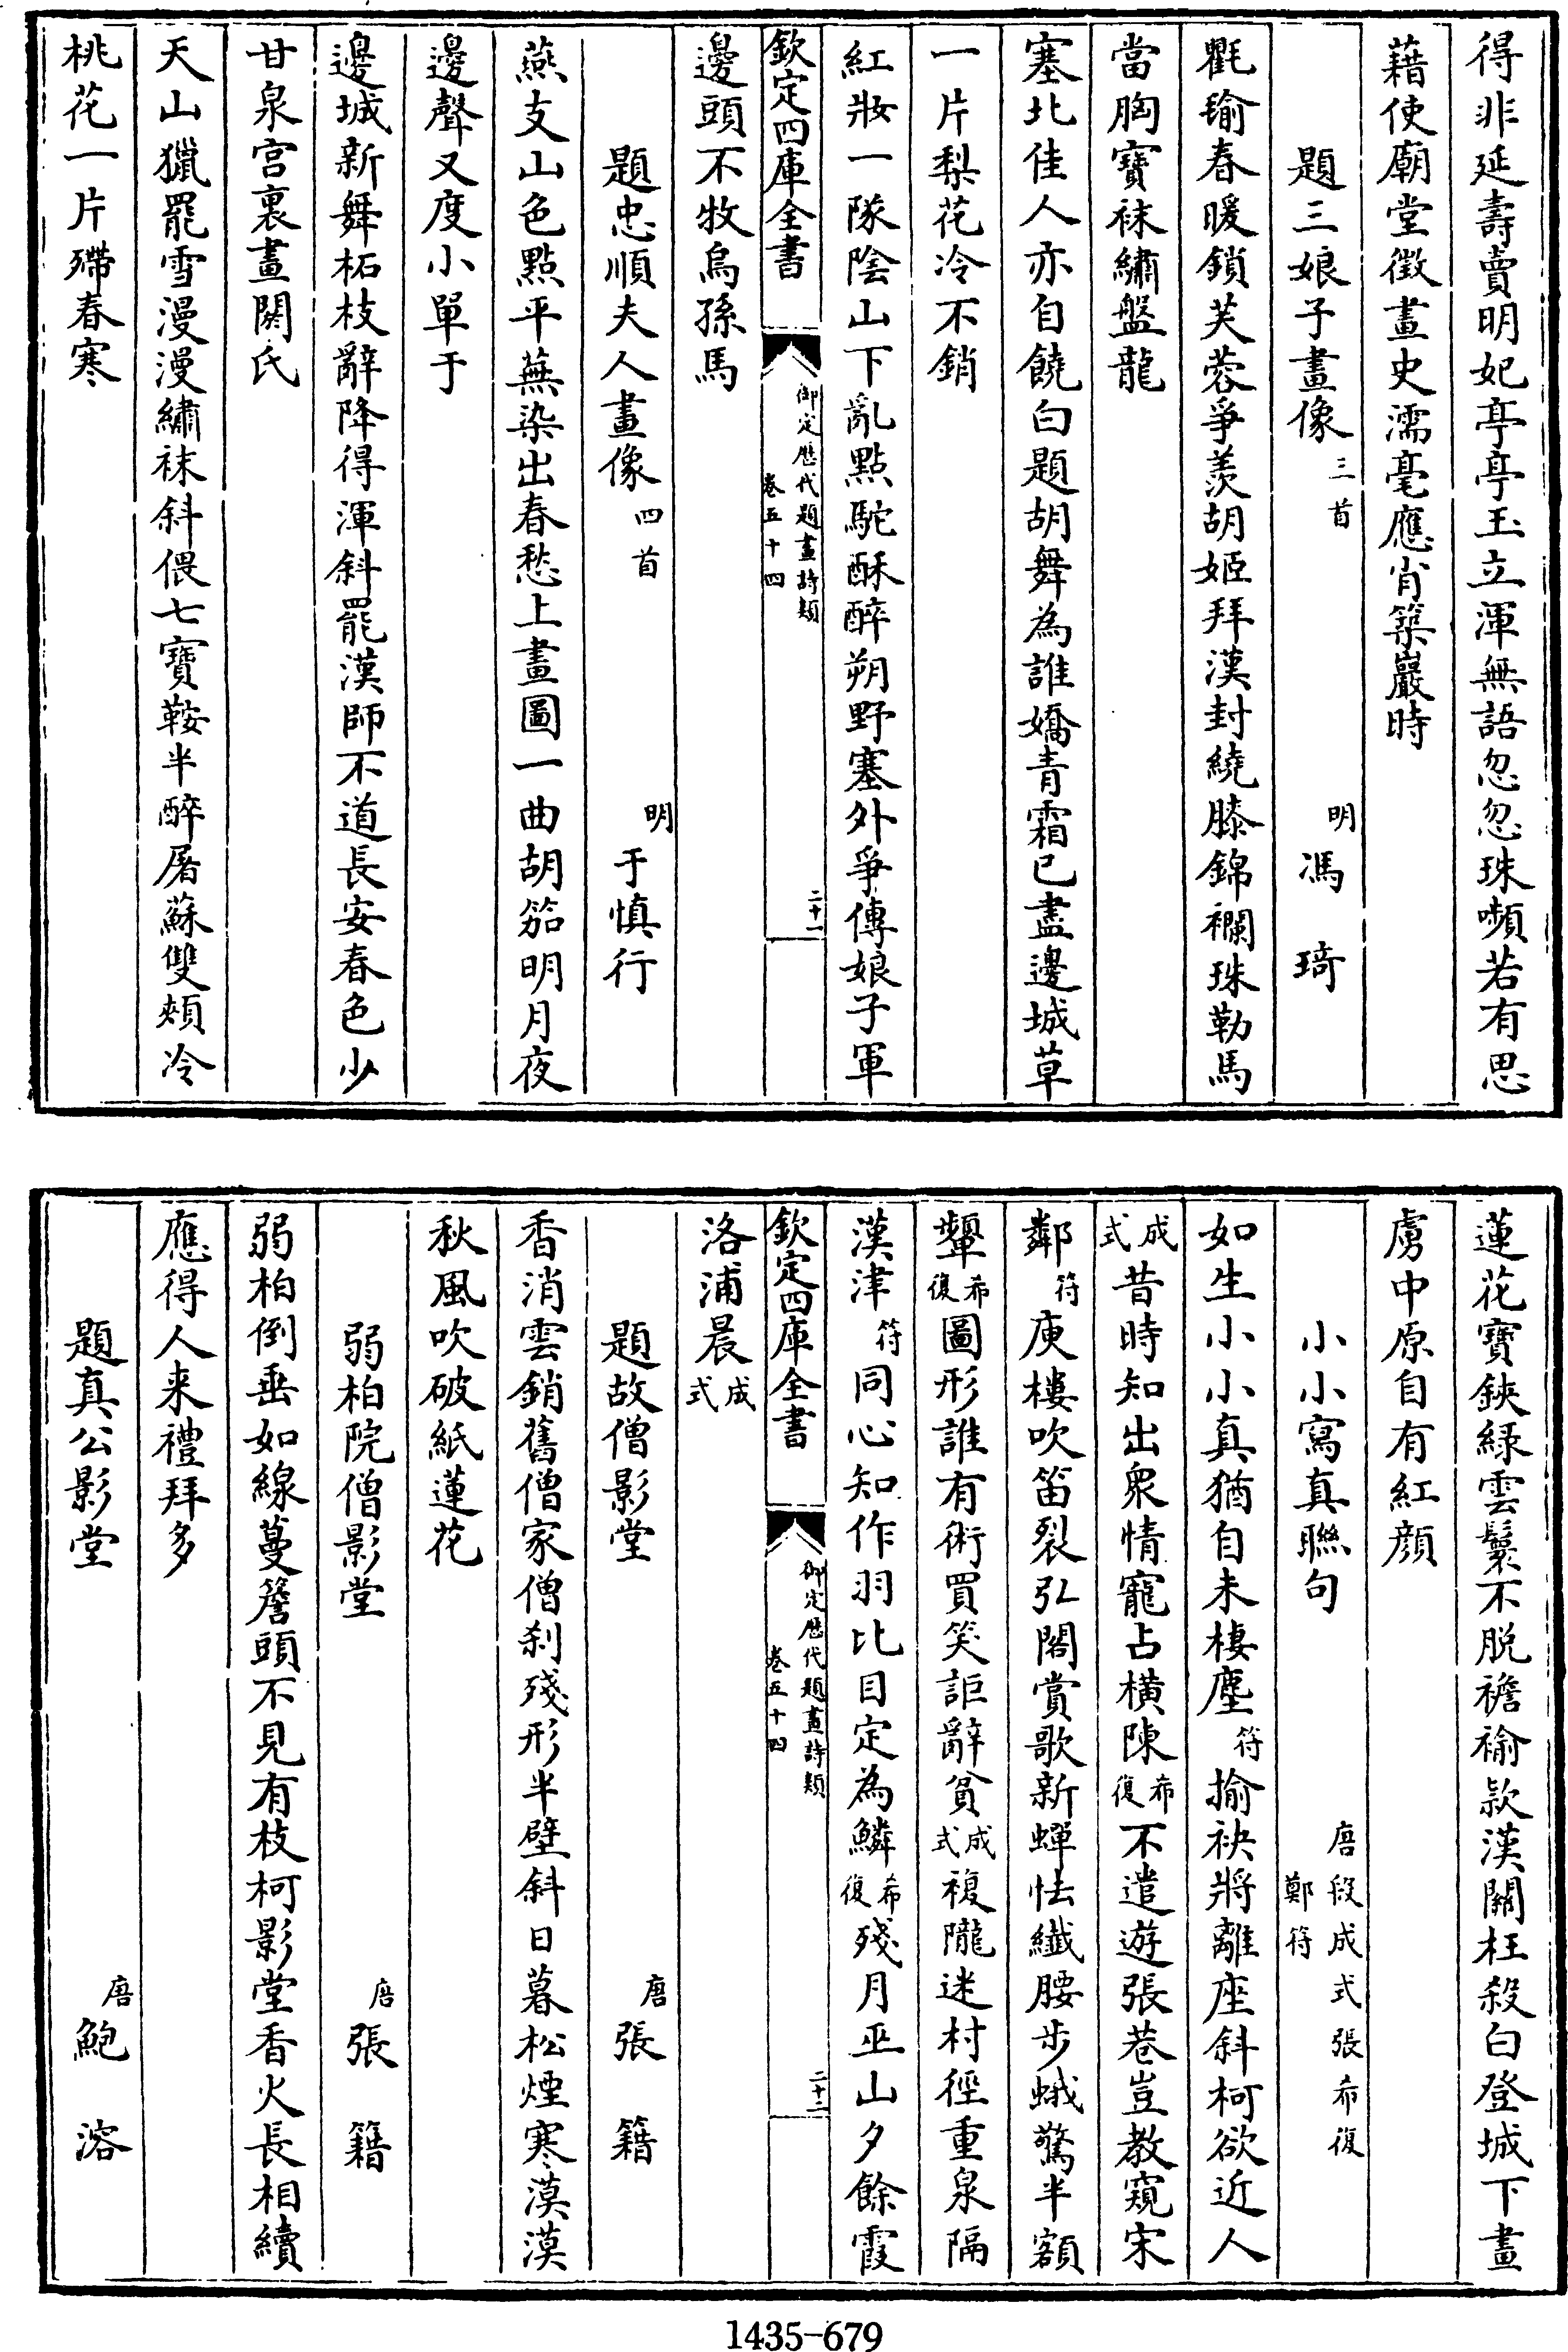 得非延壽賣明妃亭亭玉立渾無語忽忽珠嚬若有思
藉使廟堂徵畫史濡毫應肖築巖時
題三娘子畫像三首 明馮琦
氍毹春暖鎖芙蓉爭羨胡姬拜漢封繞膝錦襴珠勒馬
當胸寶袜繡盤龍
塞北佳人亦自饒白題胡舞為誰嬌青霜已盡邊城草
一片梨花冷不銷
紅妝一隊陰山下亂點駝酥醉朔野塞外爭傳娘子軍
欽定四庫全書 御定歷代題畫詩類 卷五十四 二十一
邊頭不牧烏孫馬
題忠順夫人畫像四首 明于慎行
燕支山色點平蕪染出春愁上畫圖一曲胡笳明月夜
邊聲又度小單于
邊城新舞柘枝辭降得渾斜罷漢師不道長安春色少
甘泉宮裏畫閼氏
天山獵罷雪漫漫繡袜斜偎七寶鞍半醉屠蘇雙頰冷
桃花一片殢春寒
蓮花寶鋏綠雲鬟不脫襜褕款漢關枉殺白登城下畫
虜中原自有紅顏
小小寫真聯句 唐段成式張希復鄭符
如生小小真猶自未棲塵符揄袂將離座斜柯欲近人
成式昔時知出衆情寵占橫陳希復不遣遊張巷豈教窺宋
鄰符庾樓吹笛裂弘閣賞歌新蟬怯纖腰步蛾驚半額
顰希復圖形誰有術買笑詎辭貧成式複隴迷村徑重泉隔
漢津符同心知作羽比目定為鱗希復殘月巫山夕餘霞
欽定四庫全書 御定歷代題畫詩類 卷五十四 二十二
洛浦晨成式
題故僧影堂 唐張籍
香消雲銷舊僧家僧刹殘形半壁斜日暮松煙寒漠漠
秋風吹破紙蓮花
弱柏院僧影堂 唐張籍
弱柏倒垂如線蔓簷頭不見有枝柯影堂香火長相續
應得人来禮拜多
題真公影堂 唐鮑溶
1435-679